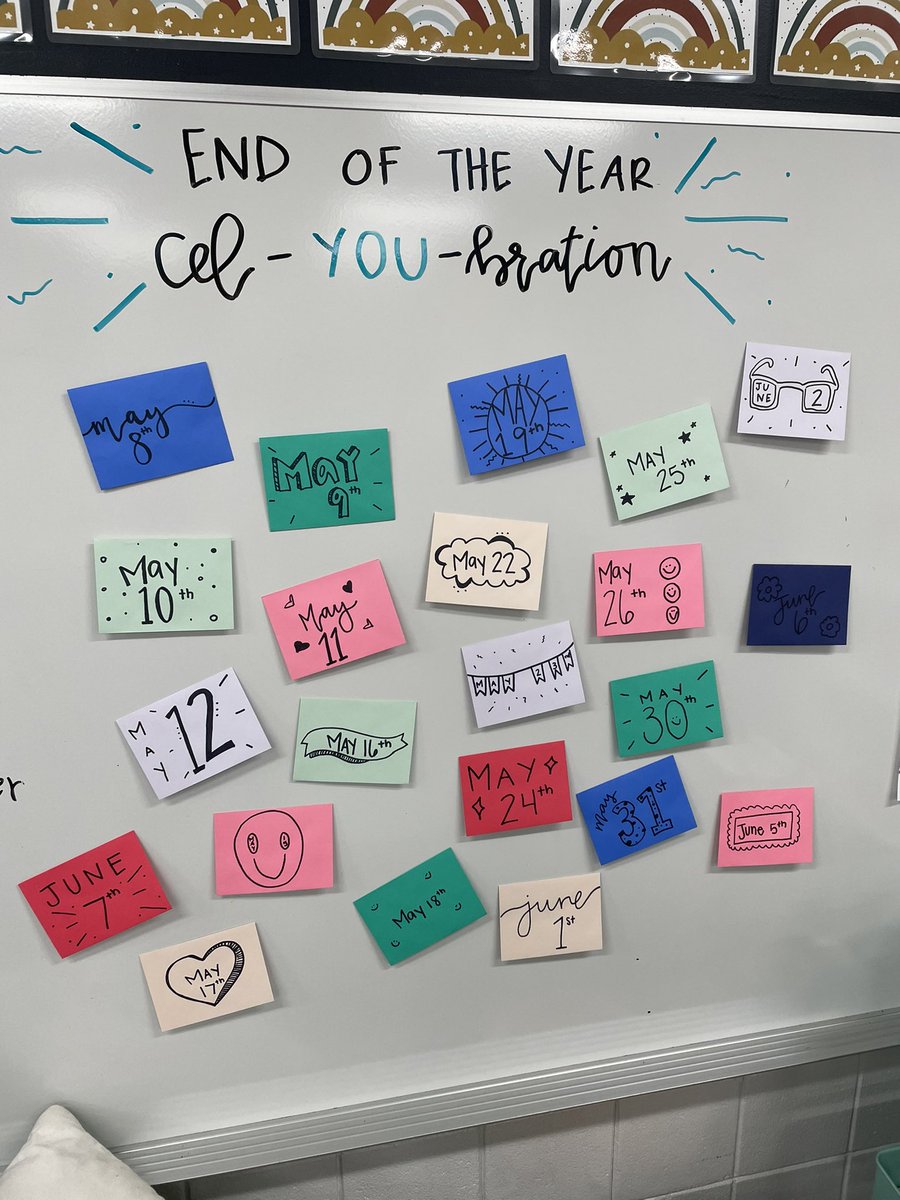 END OF THE YEAR
Cel-YOU-bration
May
8th
MAY
9th
MAY
19th
MAY
25th
JU
NE
2
May
10th
May
11
May 22
May
26th
June
6th
MAY
12
MAY 16th
MAY 23
MAY
30
MAY
24th
May
31st
June 5th
JUNE
7th
May 18th
June
1st
MAY
17th
er